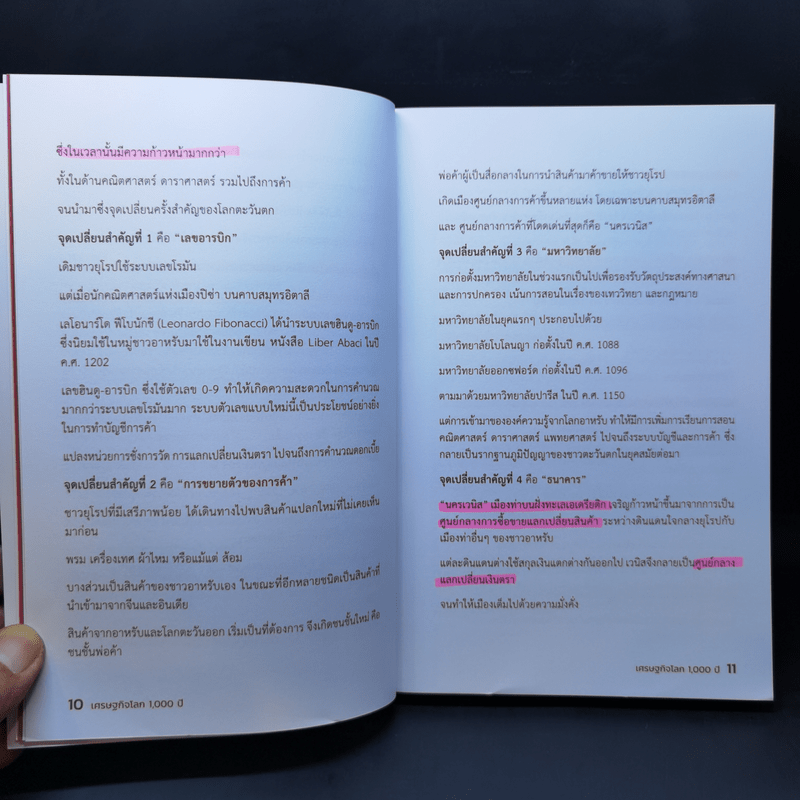 ซึ่งในเวลานั้นมีความก้าวหน้ามากกว่า
ทั้งในด้านคณิตศาสตร์ ดาราศาสตร์ รวมไปถึงการค้า
จนนำมาซึ่งจุดเปลี่ยนครั้งสำคัญของโลกตะวันตก
จุดเปลี่ยนสำคัญที่ 1 คือ “เลขอารบิก”
เดิมชาวยุโรปใช้ระบบเลขโรมัน
แต่เมื่อนักคณิตศาสตร์แห่งเมืองปิซ่า บนคาบสมุทรอิตาลี
เลโอนาร์โด ฟีโบนักชี (Leonardo Fibonacci) ได้นำระบบเลขฮินดู-อารบิก
ซึ่งนิยมใช้ในหมู่ชาวอาหรับมาใช้ในงานเขียน หนังสือ Liber Abaci ในปี
ค.ศ. 1202
เลขฮินดู-อารบิก ซึ่งใช้ตัวเลข 0-9 ทำให้เกิดความสะดวกในการคำนวณ
มากกว่าระบบเลขโรมันมาก ระบบตัวเลขแบบใหม่นี้เป็นประโยชน์อย่างยิ่ง
ในการทำบัญชีการค้า
แปลงหน่วยการชั่งการวัด การแลกเปลี่ยนเงินตรา ไปจนถึงการคำนวณดอกเบี้ย
จุดเปลี่ยนสำคัญที่ 2 คือ “การขยายตัวของการค้า”
ชาวยุโรปที่มีเสรีภาพน้อย ได้เดินทางไปพบสินค้าแปลกใหม่ที่ไม่เคยเห็น
มาก่อน
พรม เครื่องเทศ ผ้าไหม หรือแม้แต่ ส้อม
บางส่วนเป็นสินค้าของชาวอาหรับเอง ในขณะที่อีกหลายชนิดเป็นสินค้าที่
นำเข้ามาจากจีนและอินเดีย
สินค้าจากอาหรับและโลกตะวันออก เริ่มเป็นที่ต้องการ จึงเกิดชนชั้นใหม่ คือ
ชนชั้นพ่อค้า
10 เศรษฐกิจโลก 1,000 ปี
พ่อค้าผู้เป็นสื่อกลางในการนำสินค้ามาค้าขายให้ชาวยุโรป
เกิดเมืองศูนย์กลางการค้าขึ้นหลายแห่ง โดยเฉพาะบนคาบสมุทรอิตาลี
และ ศูนย์กลางการค้าที่โดดเด่นที่สุดก็คือ “นครเวนิส”
จุดเปลี่ยนสำคัญที่ 3 คือ “มหาวิทยาลัย”
การก่อตั้งมหาวิทยาลัยในช่วงแรกเป็นไปเพื่อรองรับวัตถุประสงค์ทางศาสนา
และการปกครอง เน้นการสอนในเรื่องของเทววิทยา และกฎหมาย
มหาวิทยาลัยในยุคแรกๆ ประกอบไปด้วย
มหาวิทยาลัยโบโลนญา ก่อตั้งในปี ค.ศ. 1088
มหาวิทยาลัยออกซฟอร์ด ก่อตั้งในปี ค.ศ. 1096
ตามมาด้วยมหาวิทยาลัยปารีส ในปี ค.ศ. 1150
แต่การเข้ามาขององค์ความรู้จากโลกอาหรับ ทำให้มีการเพิ่มการเรียนการสอน
คณิตศาสตร์ ดาราศาสตร์ แพทยศาสตร์ ไปจนถึงระบบบัญชีและการค้า ซึ่ง
กลายเป็นรากฐานภูมิปัญญาของชาวตะวันตกในยุคสมัยต่อมา
จุดเปลี่ยนสำคัญที่ 4 คือ “ธนาคาร”
“นครเวนิส” เมืองท่าบนฝั่งทะเลเอเดรียติก เจริญก้าวหน้าขึ้นมาจากการเป็น
ศูนย์กลางการซื้อขายแลกเปลี่ยนสินค้า ระหว่างดินแดนใจกลางยุโรปกับ
เมืองท่าอื่นๆ ของชาวอาหรับ
แต่ละดินแดนต่างใช้สกุลเงินแตกต่างกันออกไป เวนิสจึงกลายเป็นศูนย์กลาง
แลกเปลี่ยนเงินตรา
จนทำให้เมืองเต็มไปด้วยความมั่งคั่ง
เศรษฐกิจโลก 1,000 ปี 11